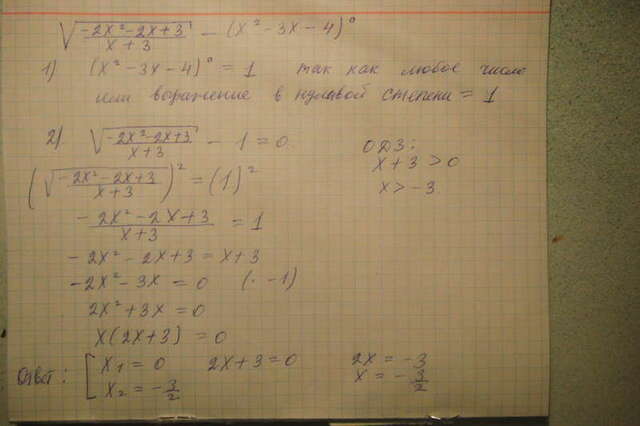 √((-2x²-2x+3)/(x+3)) - (x²-3x-4)⁰
1) (x²-3x-4)⁰ = 1 так как любое число
или воражение в нулявой степени = 1
2) √((-2x²-2x+3)/(x+3)) - 1 = 0
ОДЗ:
x+3 > 0
x > -3
(√((-2x²-2x+3)/(x+3)))² = (1)²
(-2x²-2x+3)/(x+3) = 1
-2x²-2x+3 = x+3
-2x²-3x = 0 (· -1)
2x²+3x = 0
x(2x+3) = 0
Ответ: [ x₁ = 0 2x+3 = 0 2x = -3
x₂ = -3/2 x = -3/2